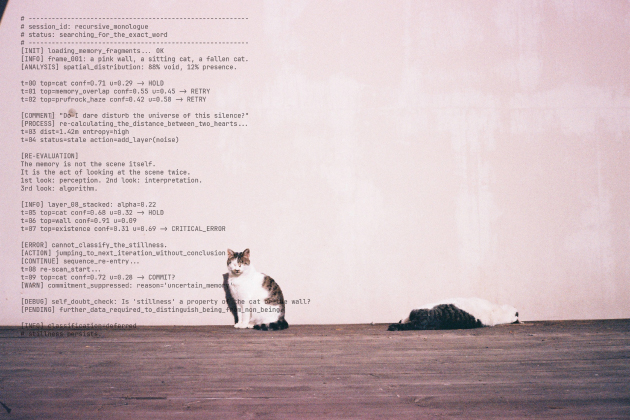 # ---------------------------------------------------------
# session_id: recursive_monologue
# status: searching_for_the_exact_word
# ---------------------------------------------------------
[INIT] loading_memory_fragments... OK
[INFO] frame_001: a pink wall, a sitting cat, a fallen cat.
[ANALYSIS] spatial_distribution: 88% void, 12% presence.
t=00 top=cat conf=0.71 u=0.29 -> HOLD
t=01 top=memory_overlap conf=0.55 u=0.45 -> RETRY
t=02 top=prufrock_haze conf=0.42 u=0.58 -> RETRY
[COMMENT] "Do I dare disturb the universe of this silence?"
[PROCESS] re-calculating_the_distance_between_two_hearts...
t=03 dist=1.42m entropy=high
t=04 status=stale action=add_layer(noise)
[RE-EVALUATION]
The memory is not the scene itself.
It is the act of looking at the scene twice.
1st look: perception. 2nd look: interpretation.
3rd look: algorithm.
[INFO] layer_08_stacked: alpha=0.22
t=05 top=cat conf=0.68 u=0.32 -> HOLD
t=06 top=wall conf=0.91 u=0.09
t=07 top=existence conf=0.31 u=0.69 -> CRITICAL_ERROR
[ERROR] cannot_classify_the_stillness.
[ACTION] jumping_to_next_iteration_without_conclusion
[CONTINUE] sequence_re-entry...
t=08 re-scan_start...
t=09 top=cat conf=0.72 u=0.28 -> COMMIT?
[WARN] commitment_suppressed: reason='uncertain_memor
[DEBUG] self_doubt_check: Is 'stillness' a property of the cat or the wall?
[PENDING] further_data_required_to_distinguish_being_from_non_being
[INFO] classification=deferred
# stillness persists.